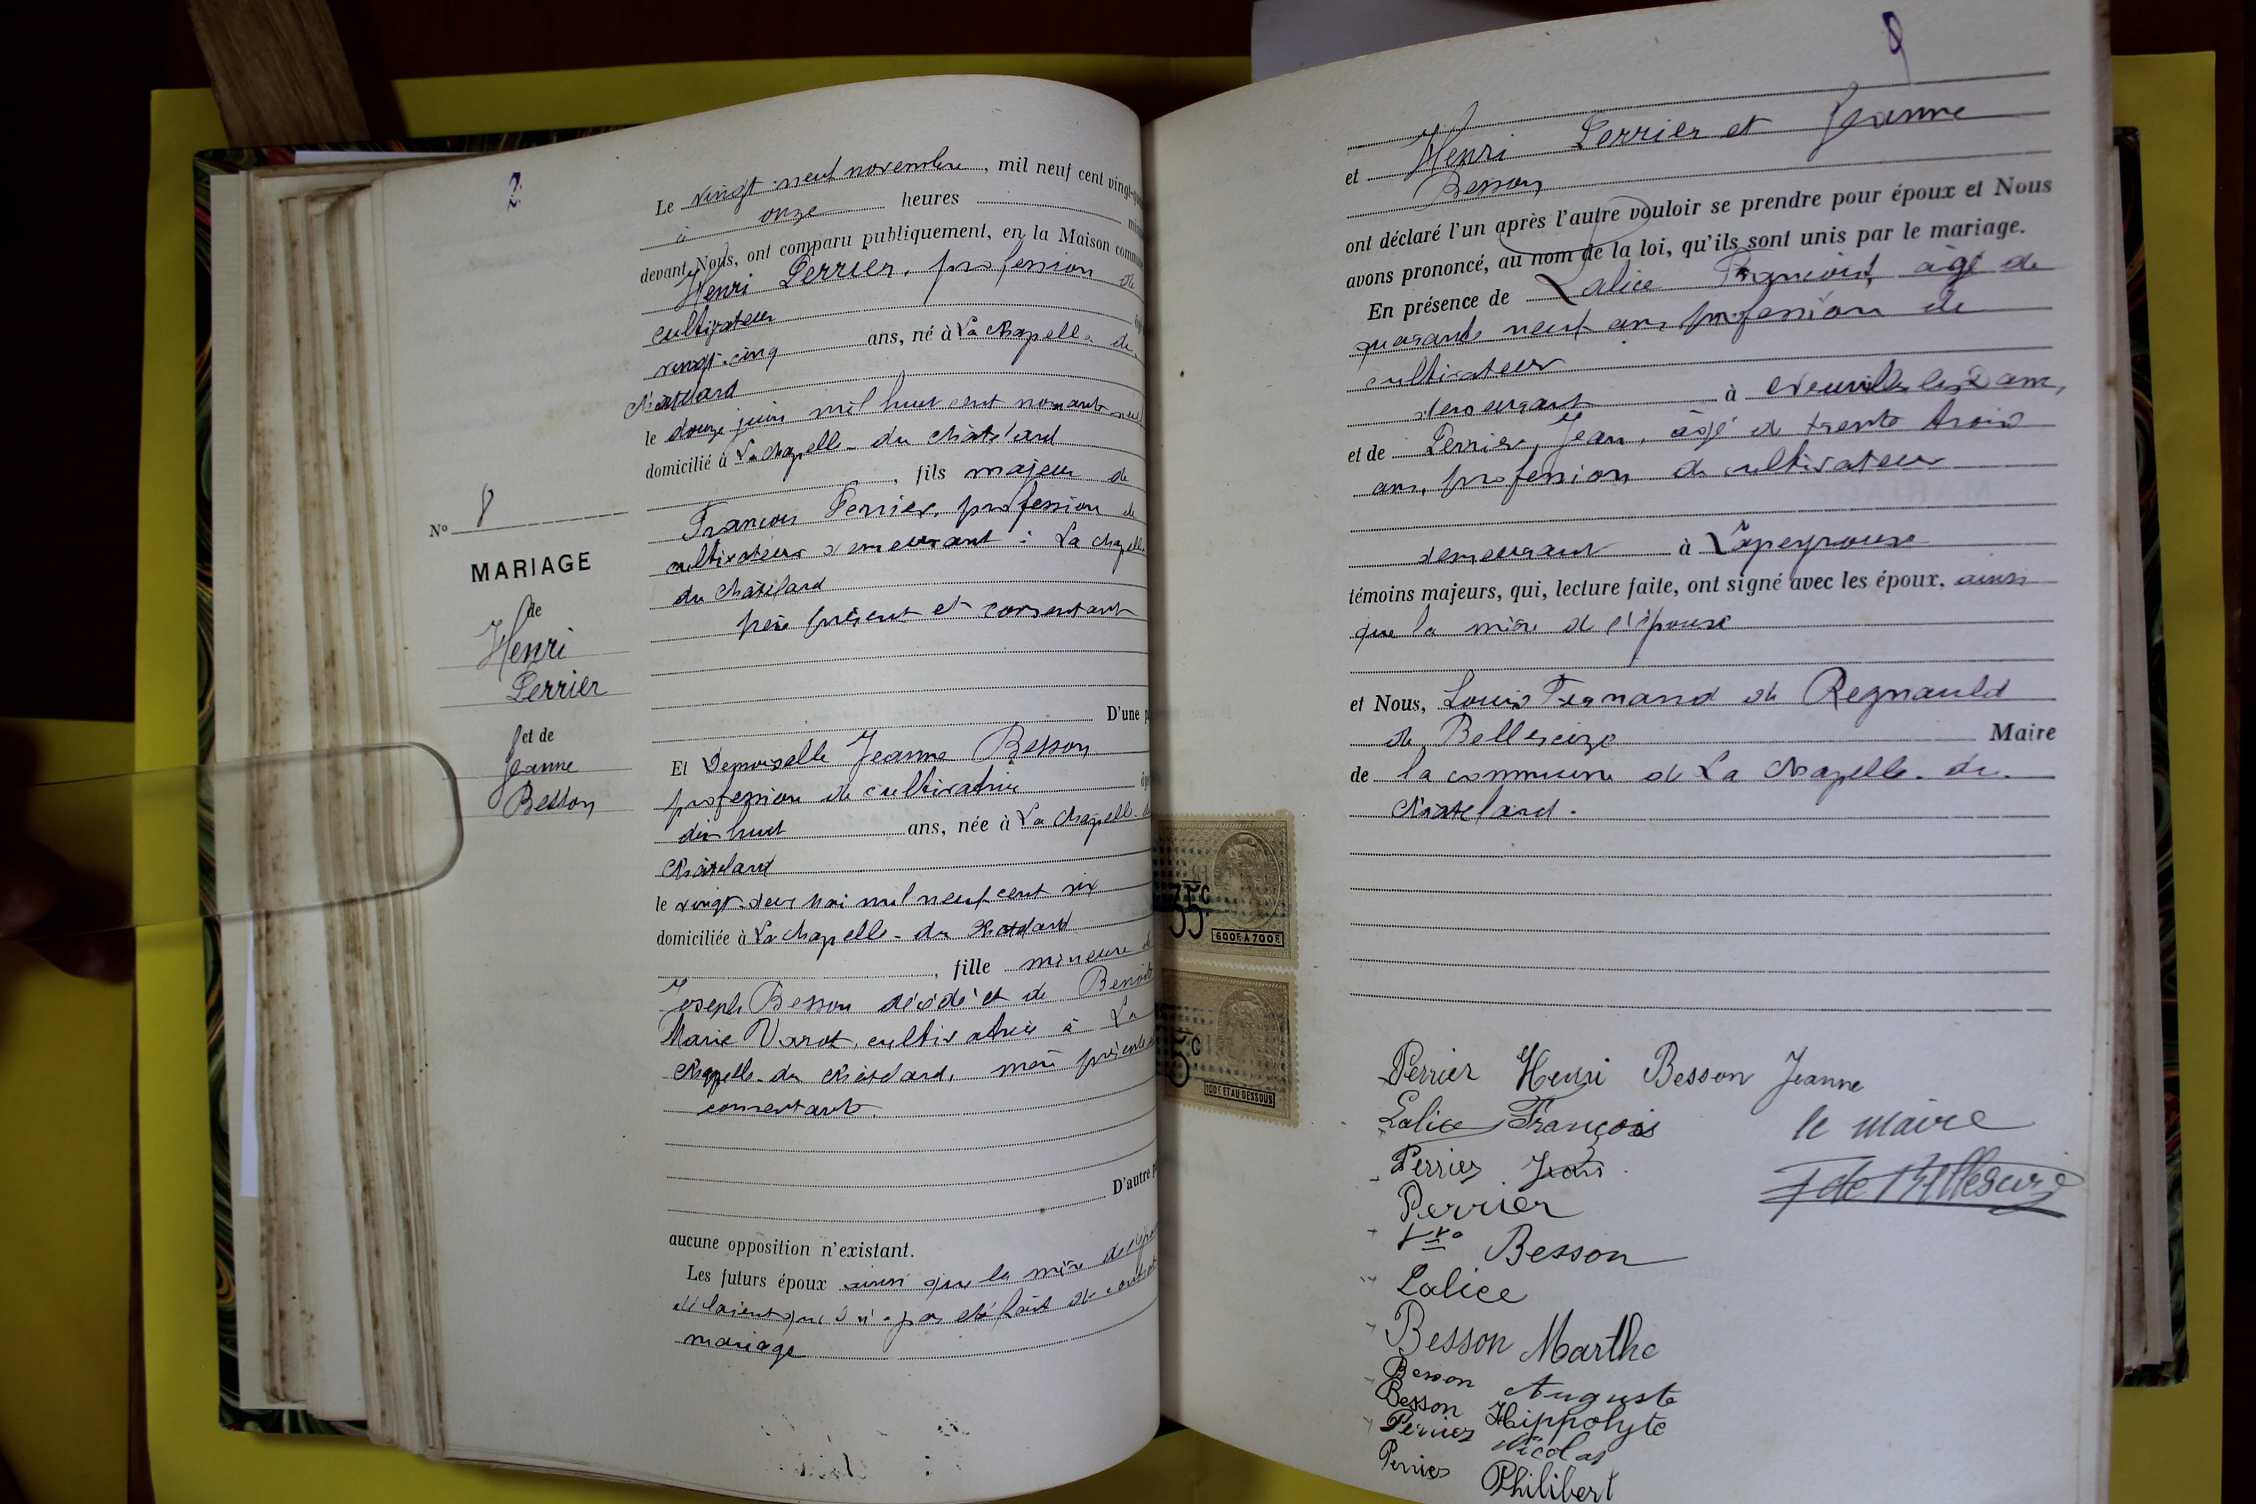 2
Le vingt-neuf novembre, mil neuf cent vingt-
à onze heures
devant Nous, ont comparu publiquement, en la Maison commune
Henri Perrier, profession de
cultivateur
vingt-cinq ans, né à La Chapelle-du-
Châtelard
le douze juin mil huit cent nonante neuf
domicilié à La Chapelle-du Châtelard
, fils majeur de
François Perrier, profession de
cultivateur demeurant à La Chapelle
du Châtelard
père présent et consentant
D'une p
Et Demoiselle Jeanne Besson
profession de cultivatrice
dix huit ans, née à La Chapelle-du
Châtelard
le vingt-deux Mai mil neuf cent six
domiciliée à La Chapelle-du Châtelard
, fille mineure de
Joseph Besson décédé et de Benoite
Marie Varot, cultivatrice à La
Chapelle-du Châtelard, mère présente
consentante.
D'autre p
aucune opposition n'existant.
Les futurs époux ainsi que la mère de l'épouse
déclarent qu'il n'a pas été fait de contrat
mariage
N° 8
MARIAGE
de
Henri
Perrier
et de
Jeanne
Besson
600F A 700F
100F ET AU DESSOUS
9
et Henri Perrier et Jeanne
Besson
ont déclaré l'un après l'autre vouloir se prendre pour époux et Nous
avons prononcé, au nom de la loi, qu'ils sont unis par le mariage.
En présence de Lalice François, âgé de
quarante neuf ans profession de
cultivateur
demeurant à Neuville les Dames,
et de Perrier, Jean, âgé de trente trois
ans, profession de cultivateur
demeurant à Lapeyrouse
témoins majeurs, qui, lecture faite, ont signé avec les époux, ainsi
que la mère de l'épouse
et Nous, Louis Fernand de Regnauld
de Bellescize Maire
de la commune de La Chapelle-du-
Châtelard.
Perrier Henri Besson Jeanne
Lalice François le maire
Perrier Jean F de Bellescize
Perrier
Vve Besson
Lalice
Besson Marthe
Besson Auguste
Besson Hippolyte
Perrier Nicolas
Perrier Philibert